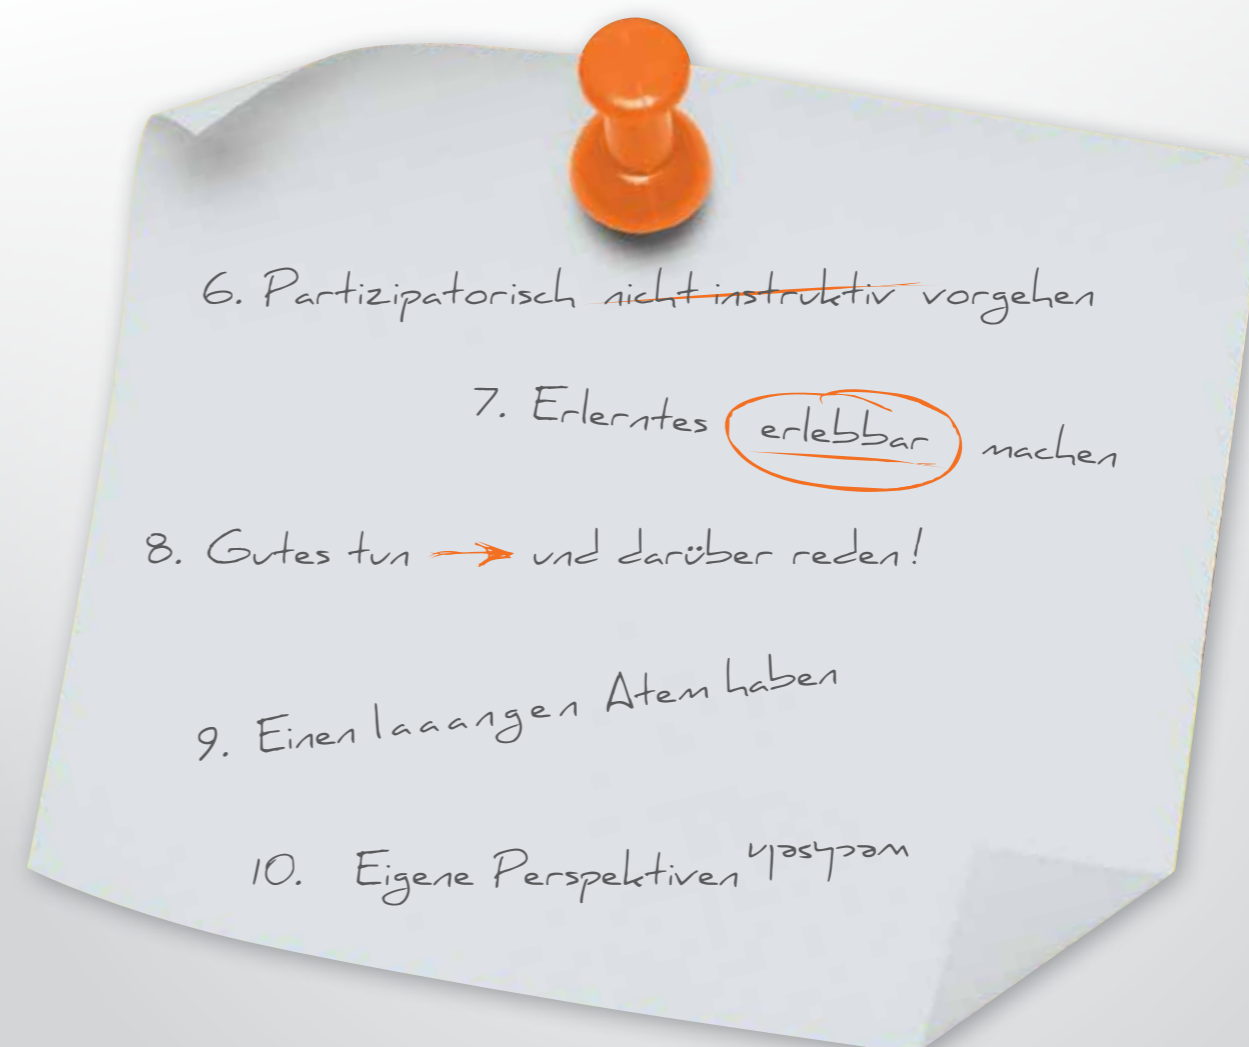 6. Partizipatorisch nicht instruktiv vorgehen
7. Erlerntes erlebbar machen
8. Gutes tun → und darüber reden!
9. Einen laaangen Atem haben
10. Eigene Perspektiven wechseln